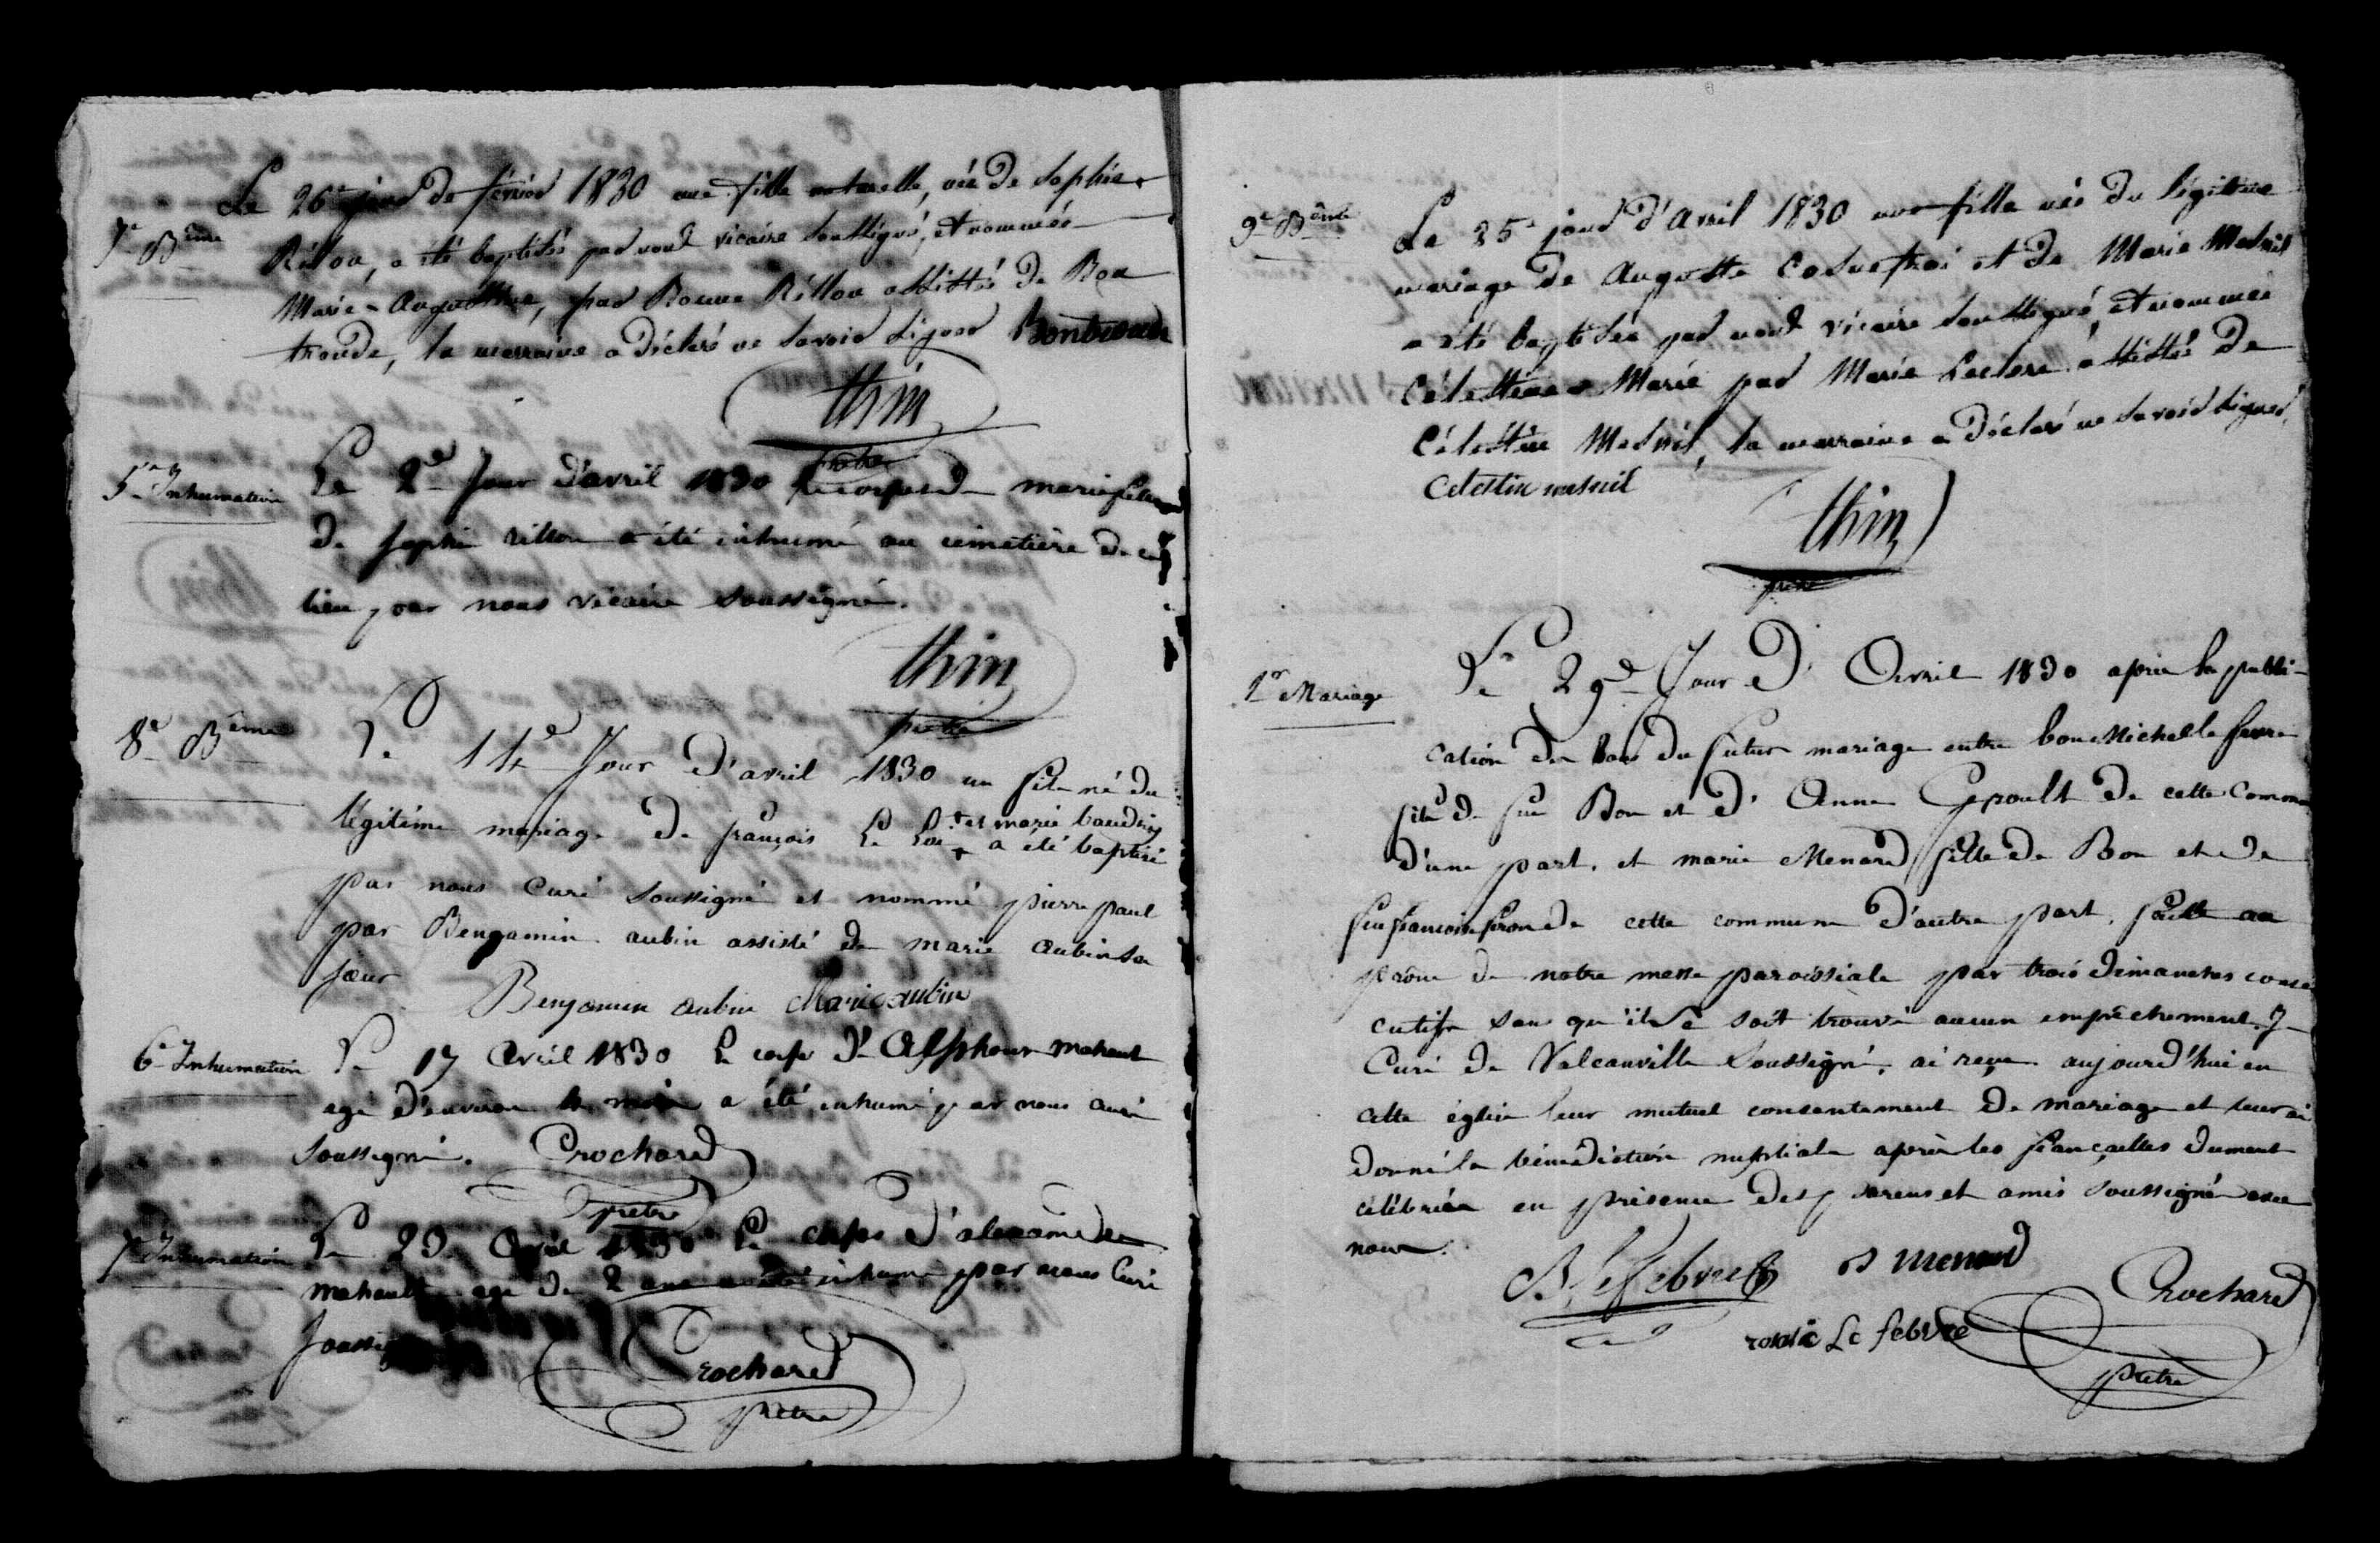 7e Bême
Le 26e jour de février 1830 une fille naturelle, née de Sophie
Rillon, a été baptisée par nous vicaire soussigné, et nommée
Marie-Augustine, par Bonne Rillon assistée de Bon
troude, la marraine a déclaré ne savoir signer Bontroude
thin
prêtre
5e Inhumation
Le 2e Jour d'avril 1830 le corps de marie fille
de Sophie rillon a été inhumé au cimetière de ce
lieu par nous vicaire soussigné.
thin
prêtre
8e Bême
Le 14e Jour d'avril 1830 un fils né du
légitime mariage de françois Le + a été baptisé
+ et marie baudry
par nous Curé soussigné et nommé pierre paul
par Benjamin aubin assisté de marie aubin sa
sœur Benjamin aubin Marie aubin
6e Inhumation
Le 17 Avril 1830 le corps d'Alphonse Mahaut
agé d'environ mois a été inhumé par nous curé
soussigné. Crochard
prêtre
7e Inhumation
Le Avril 1830 le corps d'alexandre
mahault agé de 2 ans a été inhumé par nous Curé
soussigné
Crochard
prêtre
9e Bême
Le 25e jour d'Avril 1830 une fille née du légitime
mariage de Auguste et de Marie Mesnil
a été baptisée par nous vicaire soussigné, et nommée
Célestine Marie par Marie Leclerc assistée de
Célestin Mesnil, la marraine a déclaré ne savoir signer.
Celestin mesnil
thin
prêtre
1er Mariage
Le 29e Jour d'Avril 1830 après la publi-
cation des bans du futur mariage entre bon Michel le febvre
fils de feu Bon et d'Anne de cette Commune
d'une part. et marie Menard fille de Bon et de
feu françoise de cette commune d'autre part. faite au
prône de notre messe paroissiale par trois dimanches consé
cutifs sans qu'il se soit trouvé aucun empêchement. Je
Curé de Valcanville soussigné, ai reçu aujourd'hui en
cette église leur mutuel consentement de mariage et leur ai
donné la bénédiction nuptiale après les fiançailles dument
célébrées en présence des parens et amis soussignés avec
nous.
B. Lefebvre B menard
Crochard
Le febvre
prêtre